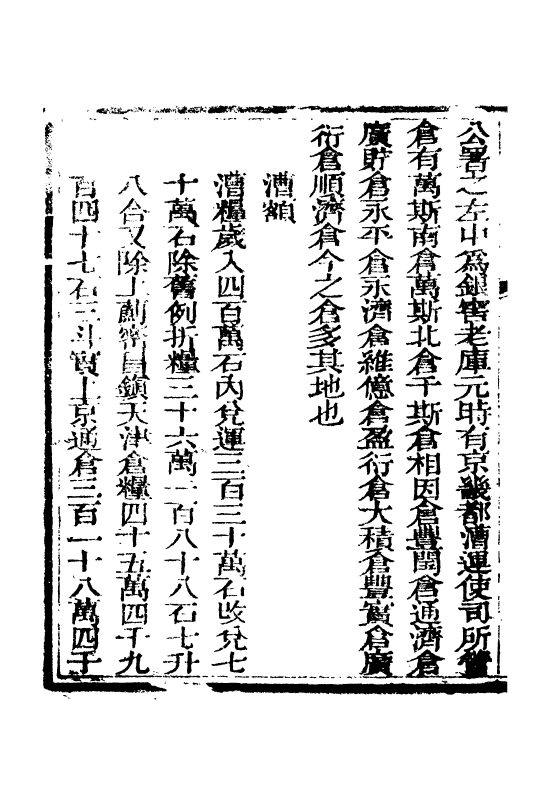 公署之左中爲銀窖老庫元時有京畿都漕運使司所管
倉有萬斯南倉萬斯北倉千斯倉相因倉豐閏倉通濟倉
廣貯倉永平倉永濟倉維億倉盈衍倉大積倉豐實倉廣
衍倉順濟倉今之倉多其地也
漕額
漕糧歲入四百萬石內兌運三百三十萬石改兌七
十萬石除舊例折糧三十六萬一百八十八石七升
八合又除上薊密昌鎮天津倉糧四十五萬四千九
百四十七石三斗實上京通倉三百一十八萬四千